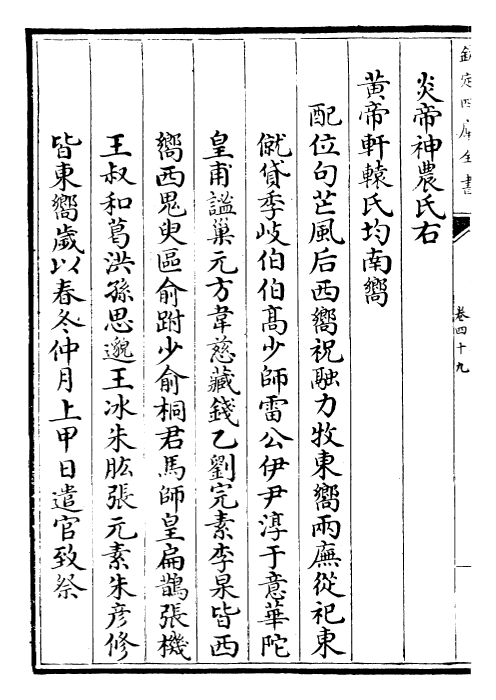 欽定四庫全書
卷四十九
炎帝神農氏右
黃帝軒轅氏均南嚮
配位句芒風后西嚮祝融力牧東嚮兩廡從祀東
僦貸季岐伯伯髙少師雷公伊尹淳于意華陀
皇甫謐巢元方韋慈藏錢乙劉完素李杲皆西
嚮西鬼臾區俞跗少俞桐君馬師皇扁鵲張機
王叔和葛洪孫思邈王冰朱肱張元素朱彦修
皆東嚮歲以春冬仲月上甲日遣官致祭